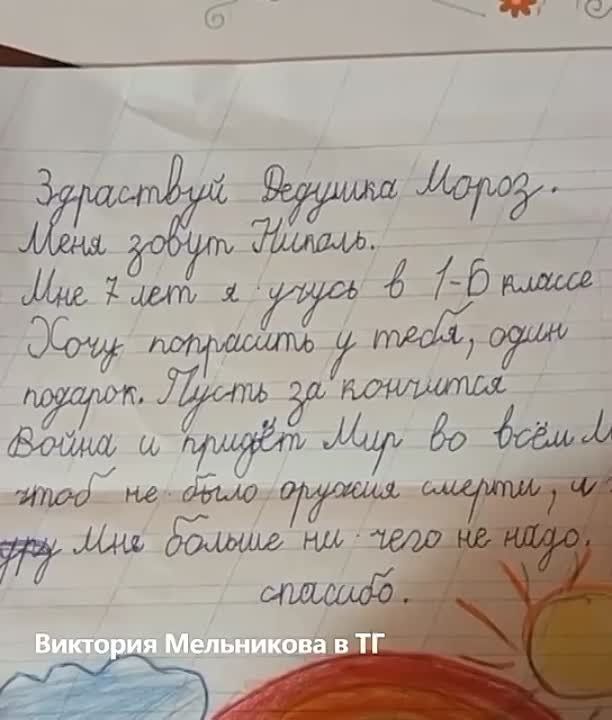 Здраствуй Дедушка Мороз.
Меня зовут Ниполь.
Мне 7 лет я учусь в 1-Б классе
Хочу попрасить у тебя, один
подарок. Пусть за кончится
Война и придёт Мир во всём М
чтоб не было оружия смерти, и
Мне больше ни чего не надо.
спасибо.
Виктория Мельникова в ТГ